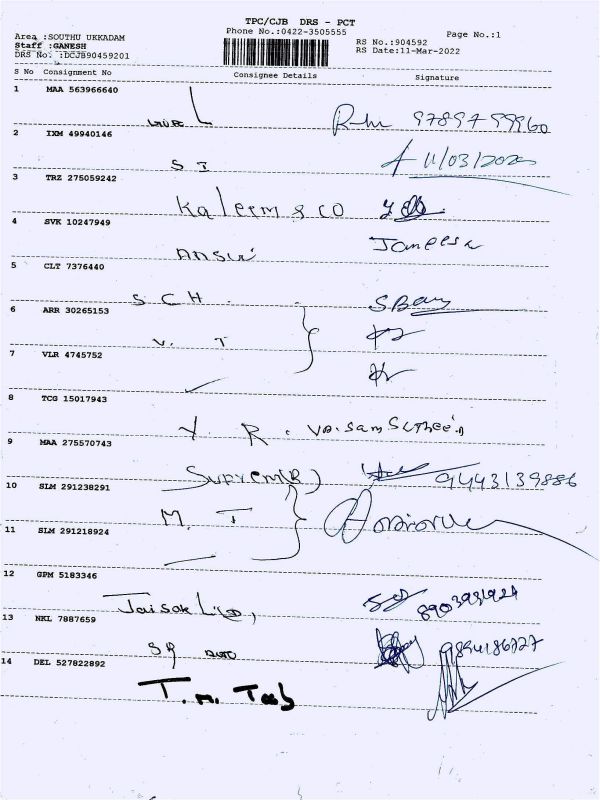 TPC/CJB DRS - PCT
Phone No.:0422-3505555
Page No.:1
Area :SOUTHU UKKADAM
Staff :GANESH
DRS No. :DCJB90459201
RS No.:904592
RS Date:11-Mar-2022
S No Consignment No Consignee Details Signature
1 MAA 563966640
97897 99960
2 IXM 49940146
S I 11/03/2022
3 TRZ 275059242
Kaleem & CO
4 SVK 10247949
Ansui Jameesa
5 CLT 7376440
S C H .
6 ARR 30265153
V. T
7 VLR 4745752
8 TCG 15017943
Y. R.
9 MAA 275570743
Suprem(R) 9443139886
10 SLM 291238291
M. T
11 SLM 291218924
12 GPM 5183346
8903931924
13 NKL 7887659
SR auto 9894186727
14 DEL 527822892
T. M. Tab